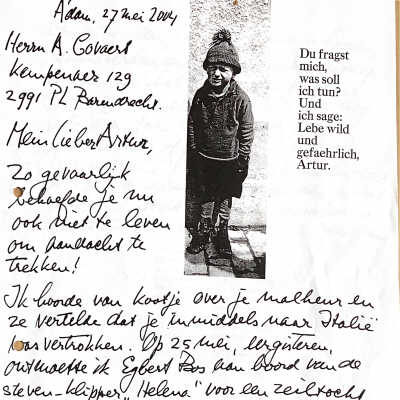 A'dam, 27 mei 2004
Herrn A. Govaert
Kempenaer 129
2991 PL Barendrecht.
Mein lieber Artur,
Zo gevaarlijk
behoefde je nu
ook niet te leven
om aandacht te
trekken!
Du fragst
mich,
was soll
ich tun?
Und
ich sage:
Lebe wild
und
gefaehrlich,
Artur.
Ik hoorde van Kootje over je malheur en
ze vertelde dat je inmiddels naar Italië
was vertrokken. Op 25 mei, eergisteren,
ontmoette ik Egbert Bos aan boord van de
steven-klipper "Helena" voor een zeiltocht